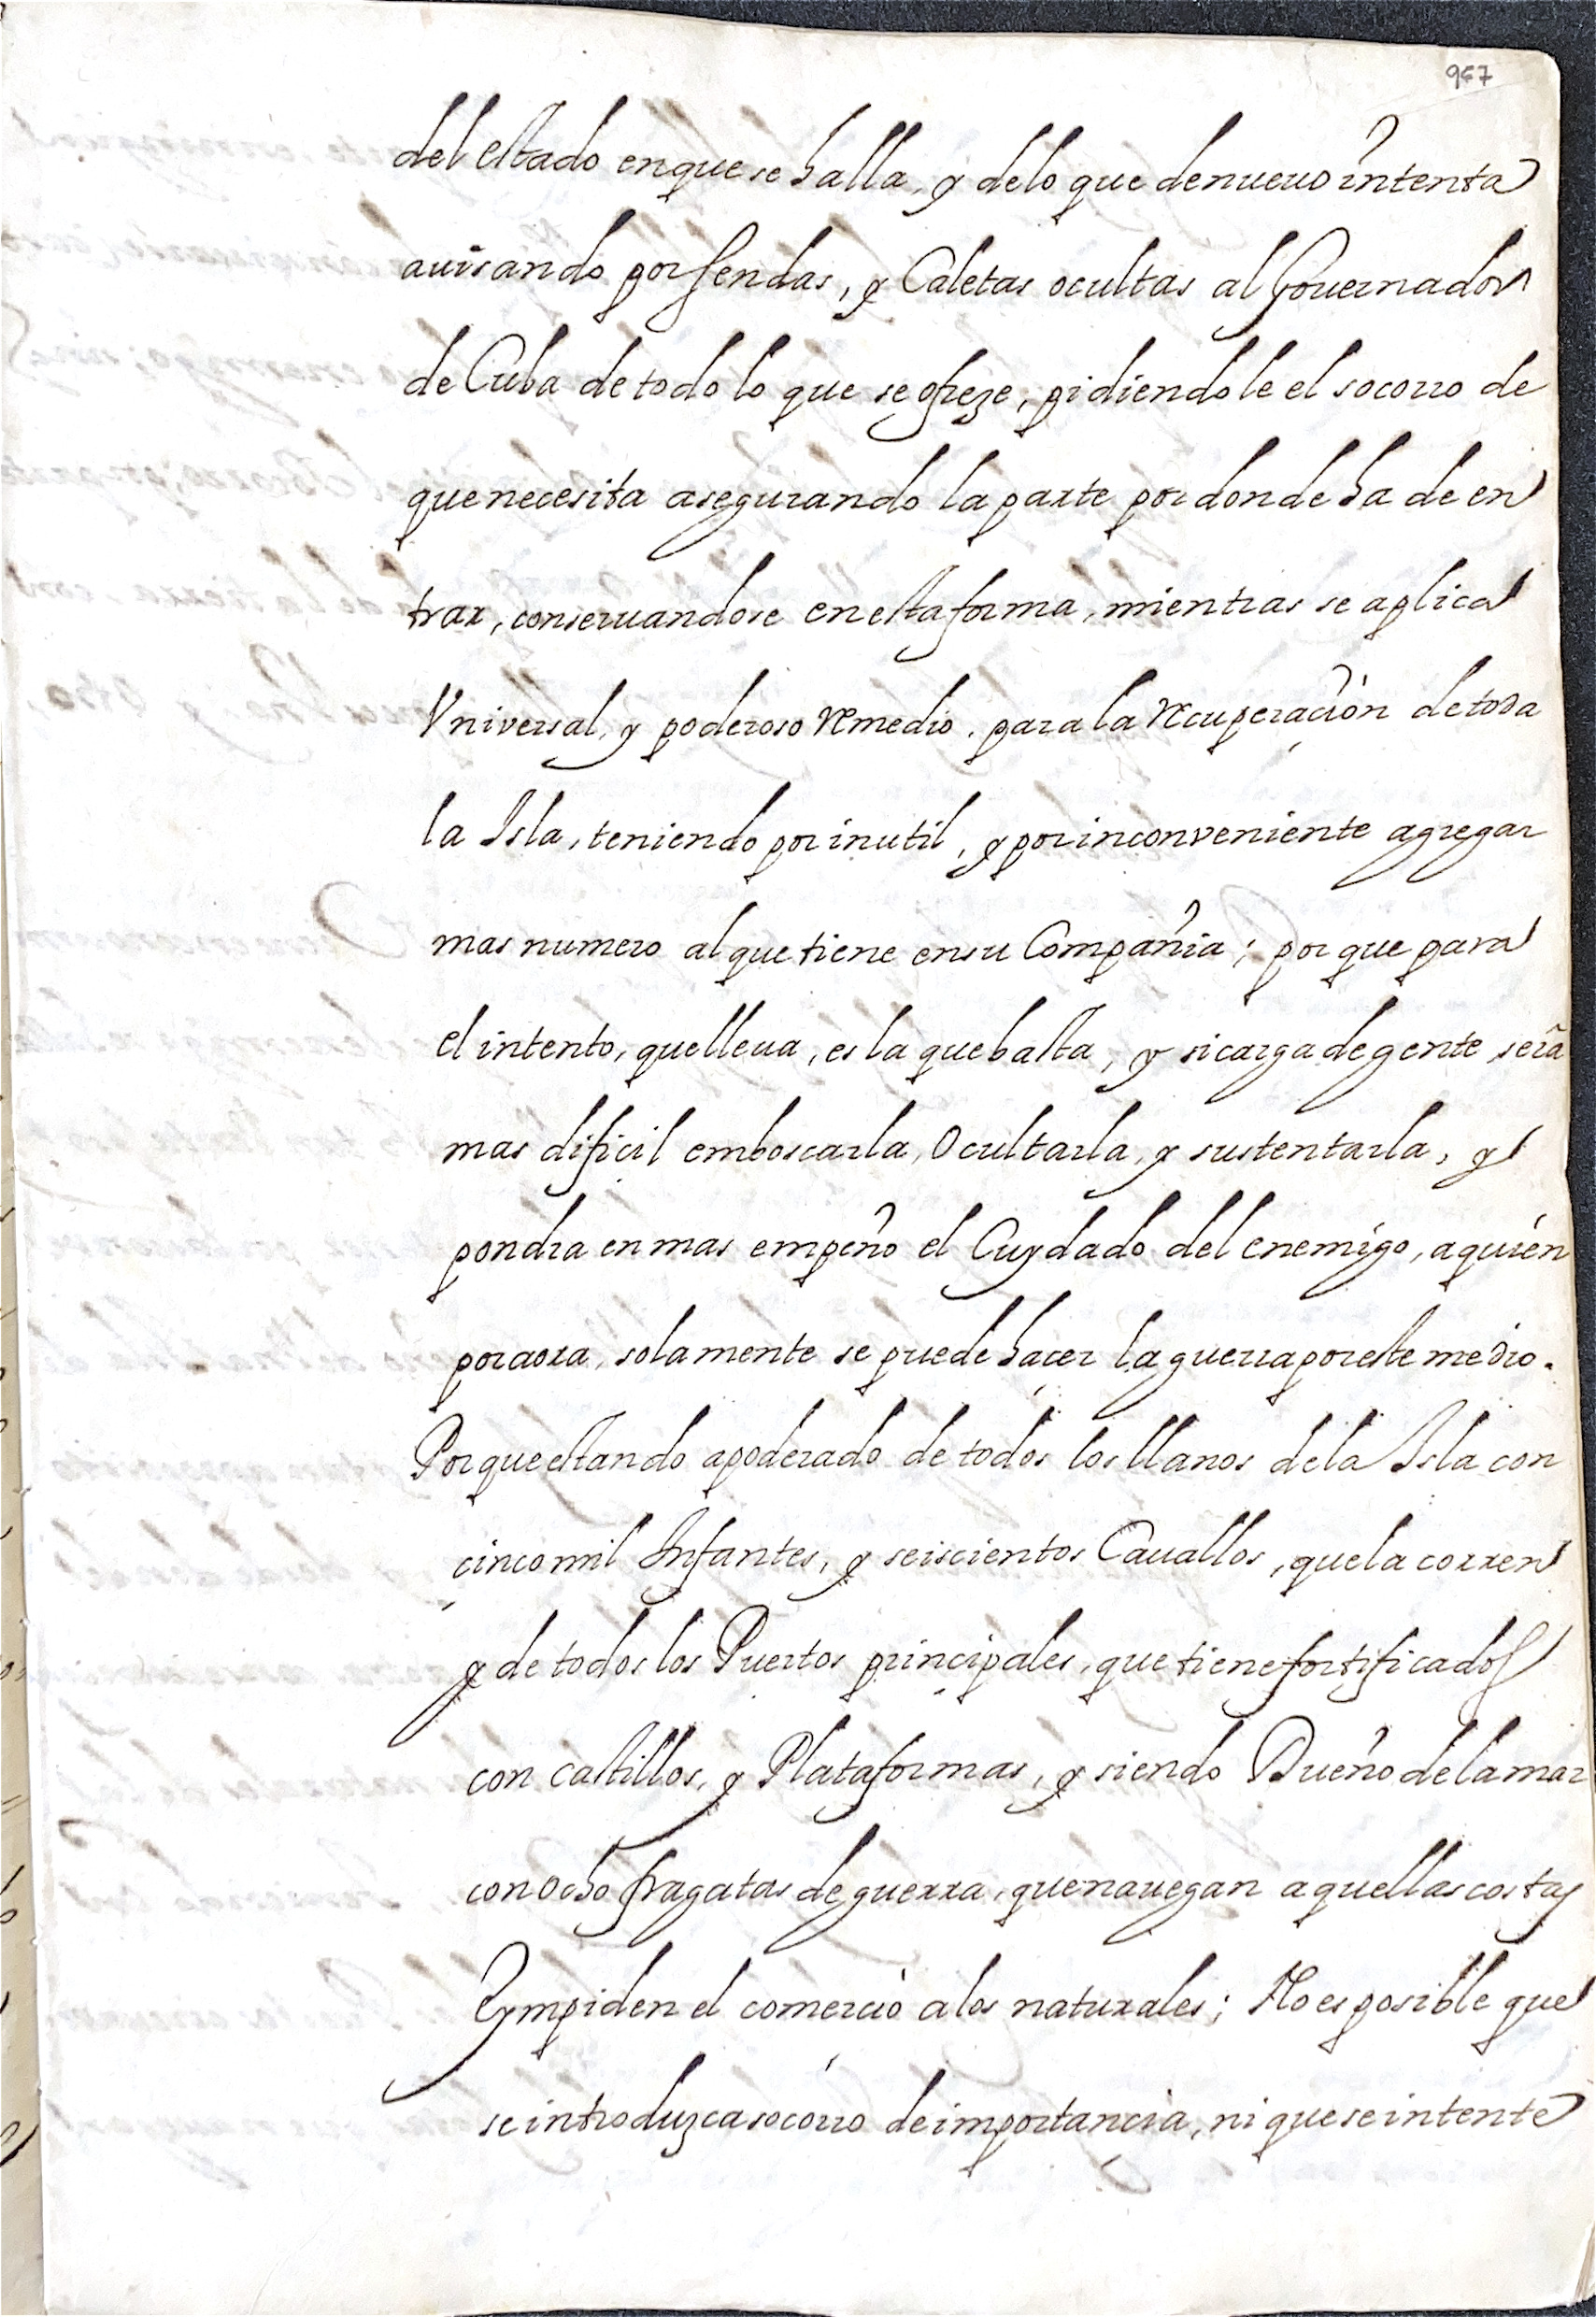 967
del estado en que se halla, y de lo que de nueuo intenta
auisando por sendas, y Caletas ocultas al Gouernador
de Cuba de todo lo que se ofreze, pidiendole el socorro de
que necesita asegurando la parte por donde ha de en
trar, conseruandose en esta forma, mientras se aplica
Vniversal, y poderoso remedio, para la recuperación de toda
la Isla, teniendo por inutil, y por inconveniente agregar
mas numero al que tiene en su Compañia; por que para
el intento, que lleua, es la que basta, y si carga de gente será
mas dificil emboscarla, Ocultarla, y sustentarla, y
pondra en mas empeño el Cuydado del enemigo, a quien
por aora, solamente se puede hacer la guerra por este medio.
Por que estando apoderado de todos los llanos de la Isla con
cinco mil Infantes, y seiscientos Cauallos, que la corren
y de todos los Puertos principales, que tiene fortificados
con castillos, y Plataformas, y siendo Dueño de la mar
con ocho fragatas de guerra, que nauegan aquellas costas
Eympiden el comercio a los naturales; No es posible que
se introduzca socorro de importancia, ni que se intente